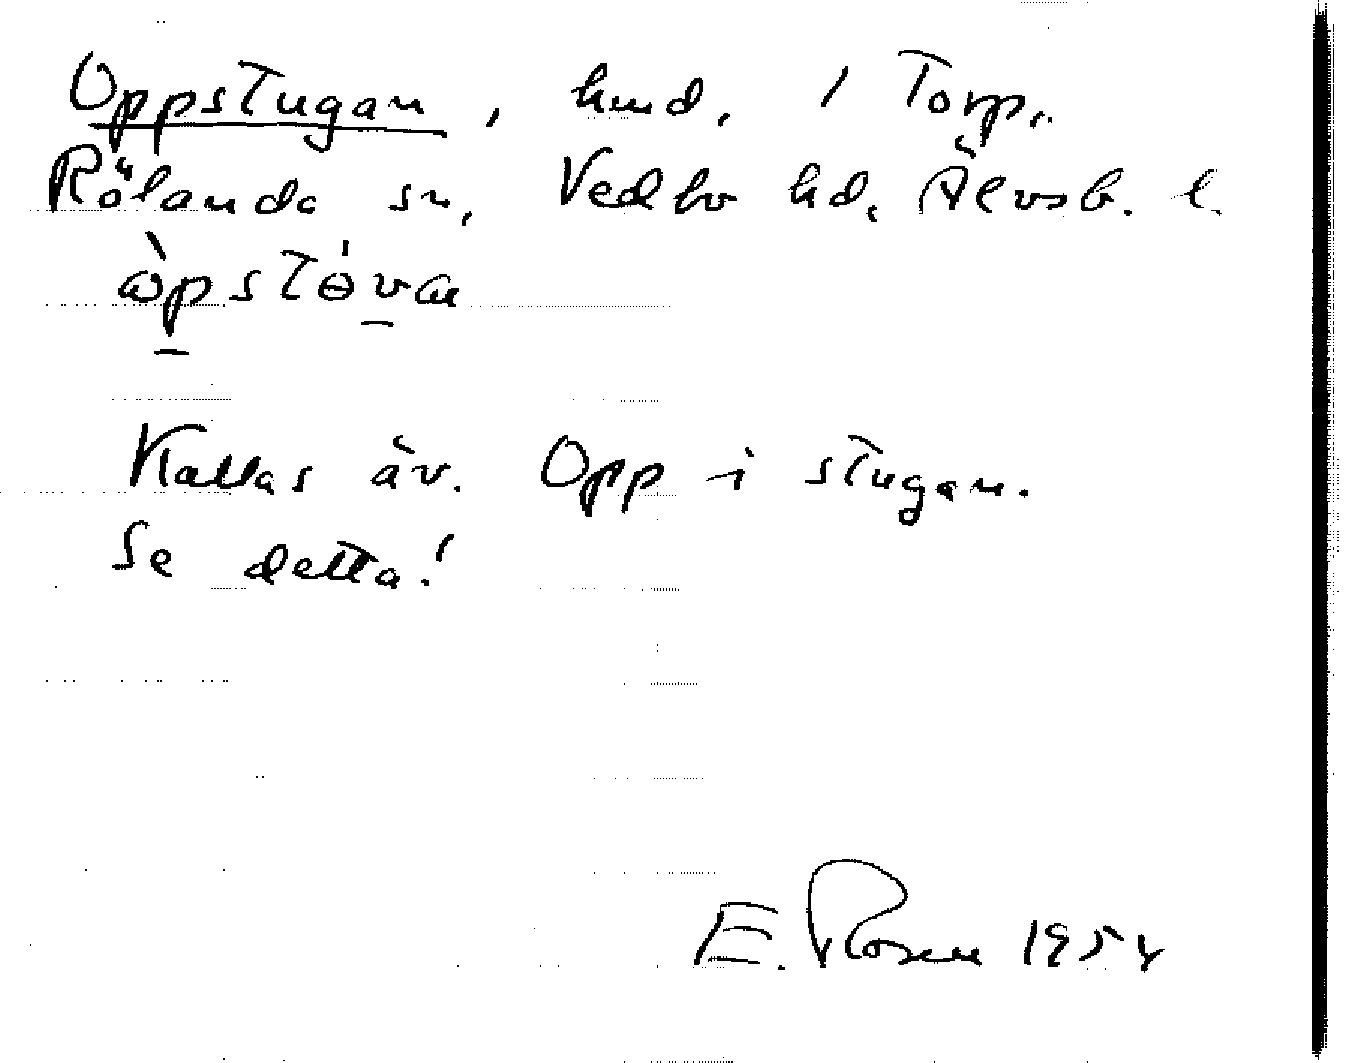 Oppstugan, hmd, / Torp,
Rölanda sn, Vedbo hd, Älvsb. l.
òpstóvan
Kallas äv. Opp i stugan.
Se detta!
E. Rosen 1954